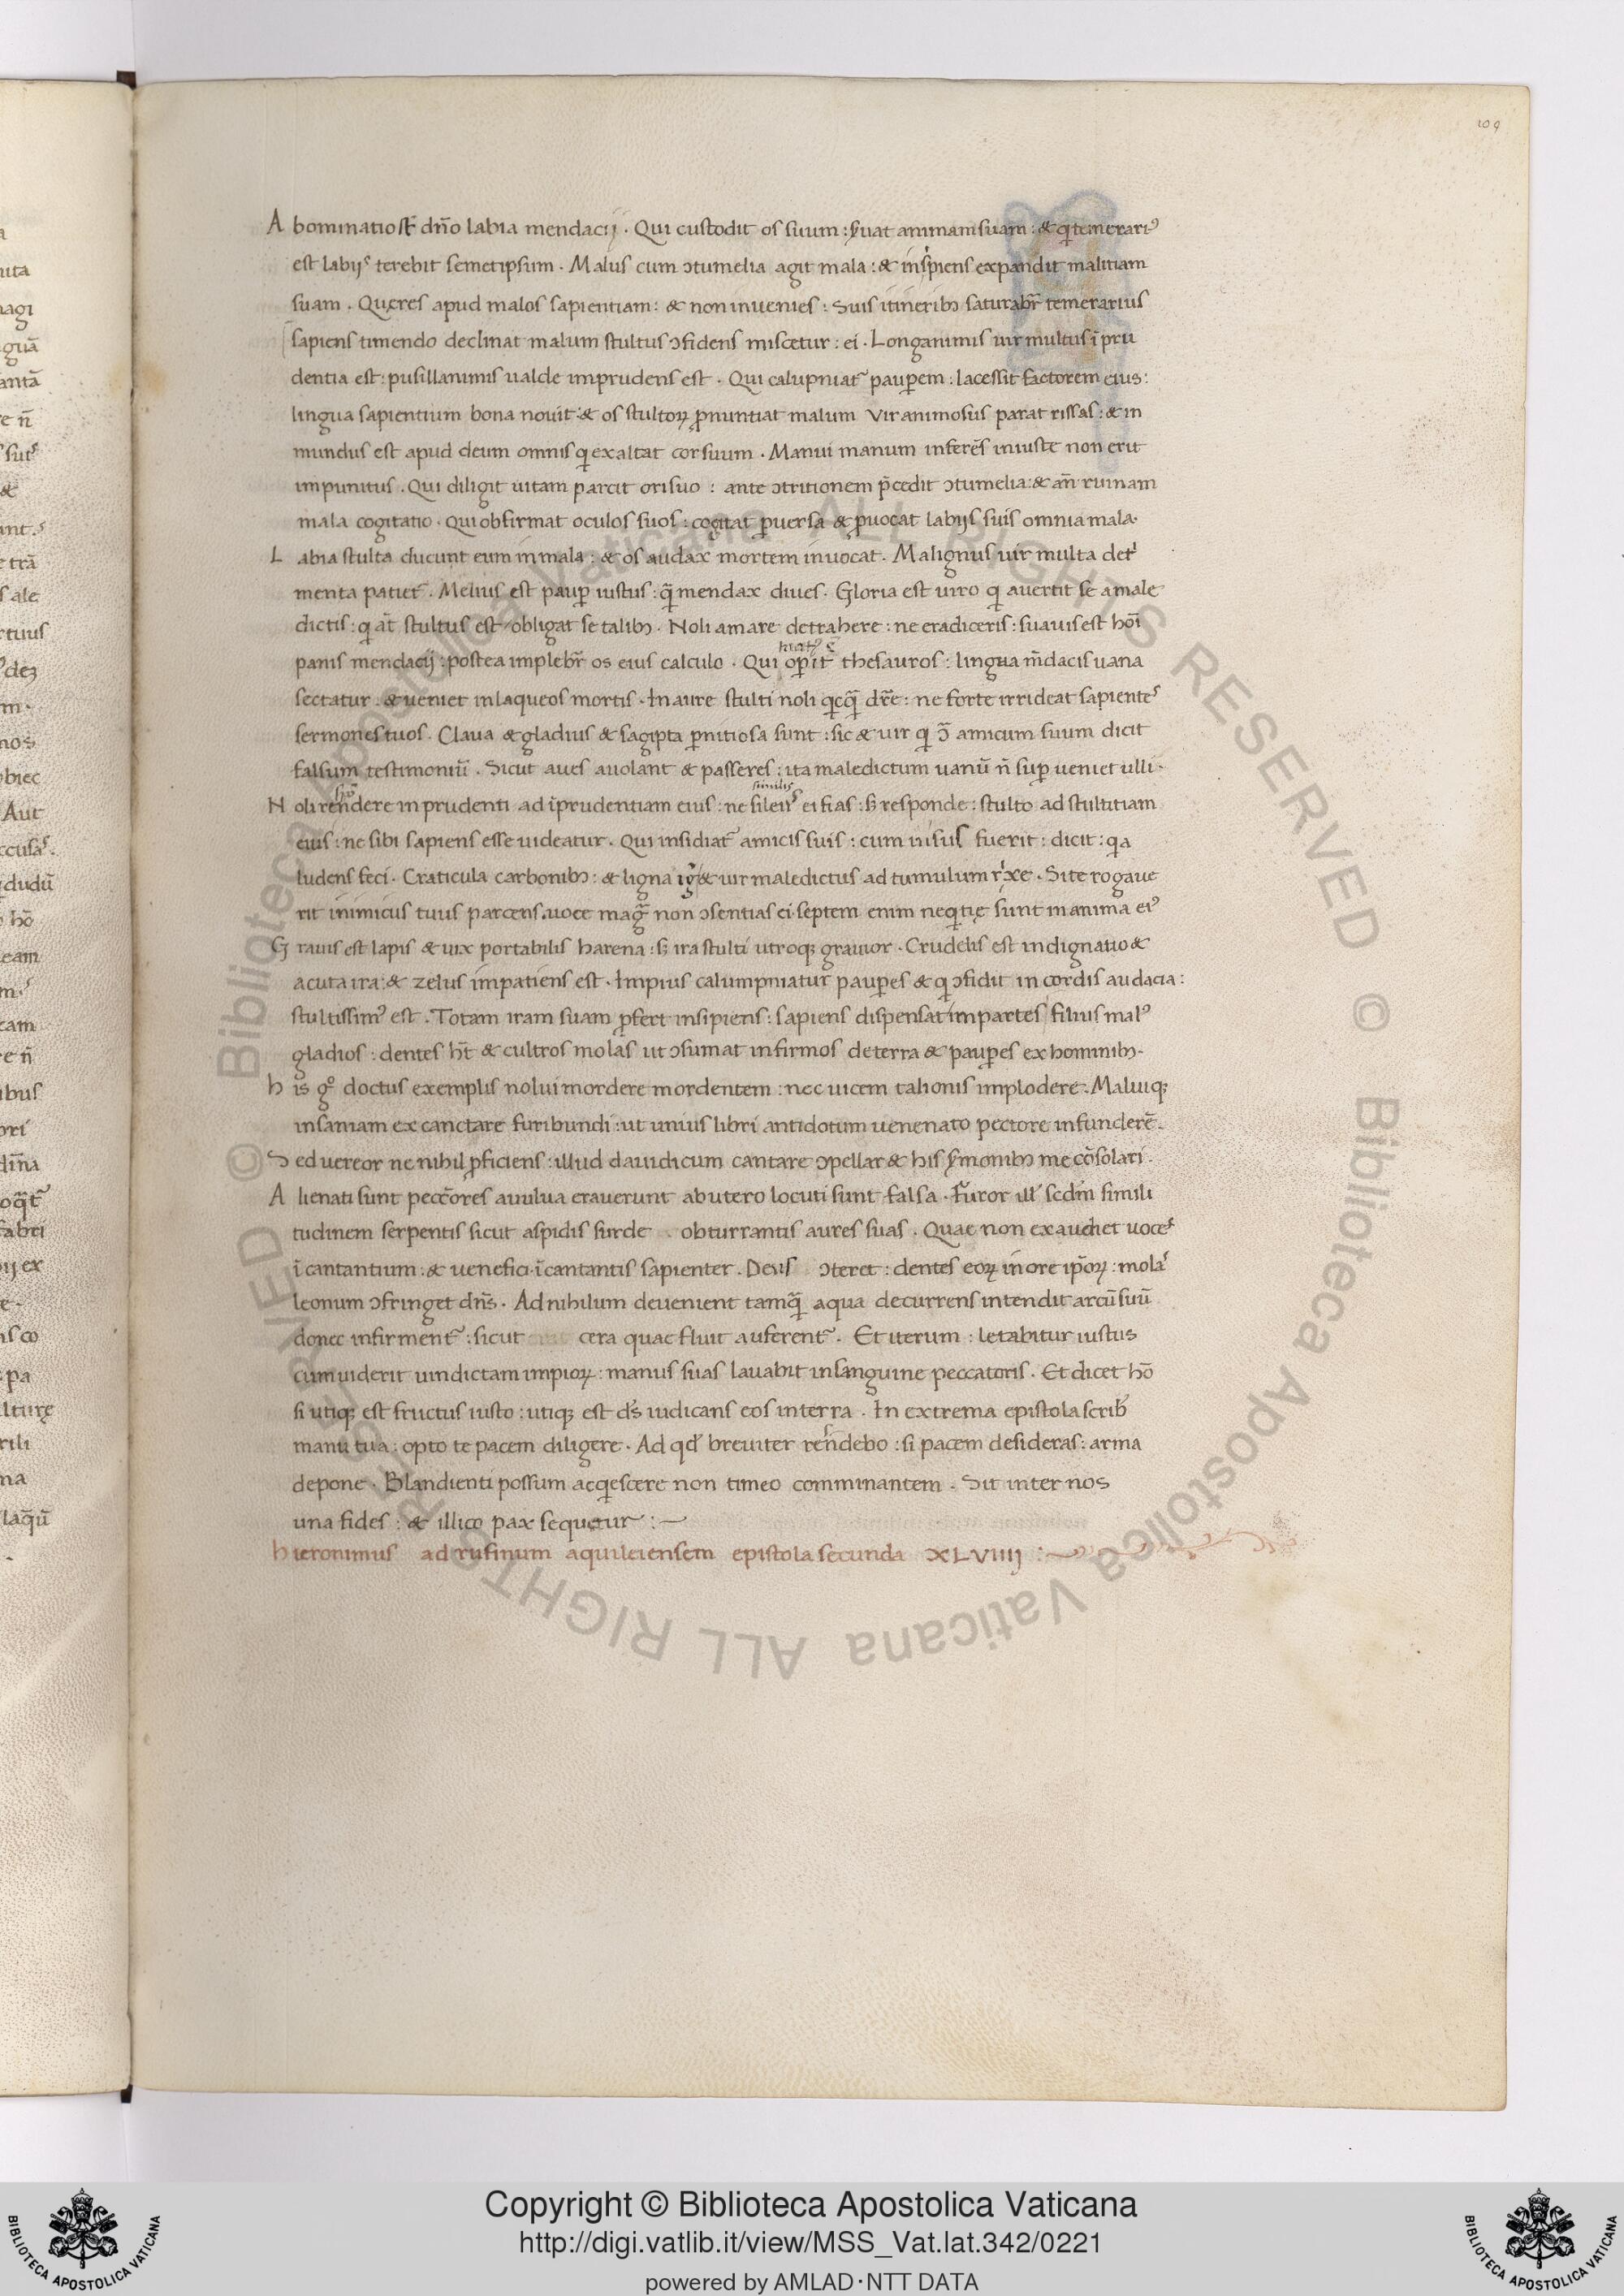 109
A bominatio st̄ dn̄o labia mendacij . Qui custodit os suum : ẜuat animam suam : & qͥ temerariꝰ
est labijˢ terebit semetipsum . Malus cum ɔtumelia agit mala : & insipiens expandit malitiam
suam . Quęres apud malos sapientiam : & non inuenies : Suis itineribꝫ saturabr̄ temerarius
sapiens timendo declinat malum stultus ɔfidens miscetur : ei . Longanimis uir multus ī pru
dentia est : pusillanimis ualde imprudens est . Qui calupniat᷑ paupem : lacessit factorem eius :
lingua sapientium bona nouit : & os stultoꝝ ꝓnuntiat malum Vir animosus parat rissas : & in
mundus est apud deum omnis qͥ exaltat cor suum . Manui manum inferēs iniuste non erit
impunitus . Qui diligit uitam parcit ori suo : ante ɔtritionem p̄cedit ɔtumelia : & an̄ ruinam
mala cogitatio . Qui obfirmat oculos suos : cogitat ꝑuersa & ꝓuocat labijs suis omnia mala .
L abia stulta ducunt eum in mala : & os audax mortem inuocat . Malignus uir multa detͥ
menta patiet᷑ . Melius est pauꝑ iustus : qͣ̄ mendax diues . Gloria est uiro qͥ auertit se a male
dictis : qͥ at̄ stultus est obligat se talibꝫ . Noli amare detrahere : ne eradiceris : suauis est hoī
panis mendacij : postea implebr̄ os eius calculo . Qui opit̄ thesauros : lingua m̄dacis uana
sectatur . & ueniet in laqueos mortis . In aure stulti noli qͥcqͣ̄ dr̄e : ne forte irrideat sapienteˢ
sermones tuos . Claua & gladius & sagipta ꝑnitiosa sunt : sic & uir qͥ ɔ̄ amicum suum dicit
falsum testimoniū . Sicut aues auolant & passeres : ita maledictum uanū n̄ suꝑ ueniet ulli .
similis
N oli rendere inprudenti ad īprudentiam eius : ne sileii᷒ ei fias : ẞ responde : stulto ad stultitiam
eius : ne sibi sapiens esse uideatur . Qui insidiat᷑ amicis suis : cum uisus fuerit : dicit : qͥa
ludens feci . Craticula carbonibꝫ : & ligna igͥ & uir maledictus ad tumulum rixe . Si te rogaue
rit inimicus tuus parcens uoce magͣ non ɔsentias ei . septem enim neqͥtię sunt in anima eiꝰ
G rauis est lapis & uix portabilis harena : ẞ ira stulti utroqꝫ grauior . Crudelis est indignatio &
acuta ira : & zelus impatiens est . Impius calumpniatur pauꝑes & qͥ ɔfidit in cordis audacia :
stultissimꝰ est . Totam iram suam ꝓfert insipiens : sapiens dispensat in partes filius malꝰ
gladios : dentes ht̄ & cultros molas ut ɔsumat infirmos de terra & pauꝑes ex hominibꝫ .
h is gͦ doctus exemplis nolui mordere mordentem : nec uicem talionis implodere . Maluiqꝫ
insaniam ex canctare furibundi : ut unius libri antidotum uenenato pectore infunderē .
S ed uereor ne nihil ꝓficiens : illud dauidicum cantare ɔpellar & his ẜmonibꝫ me cōsolari .
A lienati sunt pecc̄ores auulua erauerunt ab utero locuti sunt falsa . Furor illͥ scdm̄ simili
tudinem serpentis sicut aspidis surde obturrantis aures suas . Quae non exaudiet uoceˢ
īcantantium : & uenefici īcantantis sapienter . Deus ɔteret : dentes eoꝝ in ore ip̄oꝝ : molaˢ
leonum ɔfringet dn̄s . Ad nihilum deuenient tamqͣ̄ aqua decurrens intendit arcū suū
donec infirment᷑ : sicut cera quae fluit auferent᷑ . Et iterum : letabitur iustus
cum uiderit uindictam impioꝝ : manus suas lauabit in sanguine peccatoris . Et dicet hō
si utiqꝫ est fructus iusto : utiqꝫ est dˢ iudicans eos in terra . In extrema epistola scribͥ
manu tua : opto te pacem diligere . Ad qd̓ breuiter rendebo : si pacem desideras : arma
depone . Blandienti possum acqͥescere non timeo comminantem . Sit inter nos
una fides : & illico pax sequetur :—
hieronimus ad rufinum aquileiensem epistola secunda XLVIIIJ :
© Biblioteca Apostolica Vaticana ALL RIGHTS RESERVED © Biblioteca Apostolica Vaticana ALL RIGHTS RESERVED
Copyright © Biblioteca Apostolica Vaticana
http://digi.vatlib.it/view/MSS_Vat.lat.342/0221
powered by AMLAD·NTT DATA
BIBLIOTECA APOSTOLICA VATICANA
BIBLIOTECA APOSTOLICA VATICANA